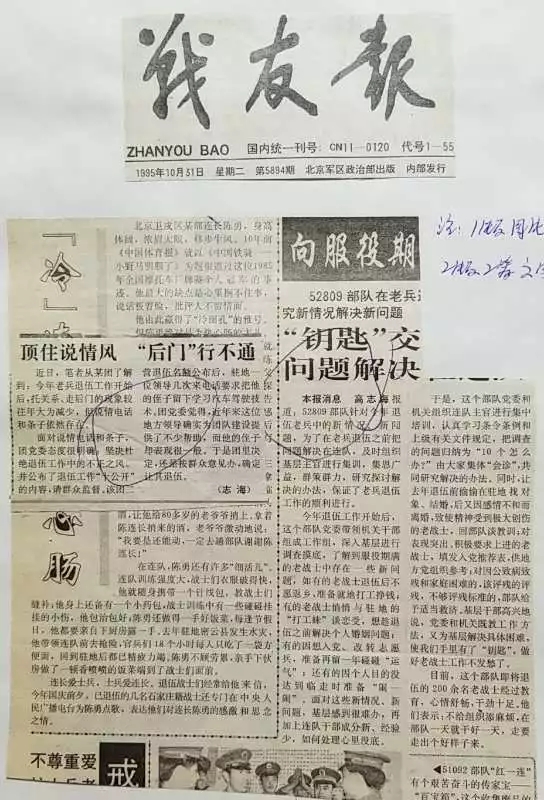 战友报
ZHANYOU BAO 国内统一刊号:CN11—0120 代号1—55
1995年10月31日 星期二 第5894期 北京军区政治部出版 内部发行
『冷』
北京卫戍区某部连长陈勇,身高
体阔,浓眉大眼,移步生风。10年前
《中国体育报》就以
他由此赢得了“冷面孔”的雅号。
顶住说情风 “后门”行不通
近日,笔者从某团了解
到,今年老兵退伍工作开始
后,托关系、走后门的现象较
往年大为减少,但说情电话
和条子依然存在。
面对说情电话和条子,
团党委态度很明确,坚决杜
绝退伍工作中的不正之风,
并公布了退伍工作“十公开”
的内容,请群众监督。该团二
营退伍名额公布后,驻地一
位领导几次来电话要求把他
的侄子留下学习汽车驾驶技
术,团党委觉得,近年来这位
地方领导确实为团队建设提
供了不少帮助,而他的侄子
年表现很一般,于是团里决
定,还是按群众意见办,确定
让其退伍。
(志海)
心肠
让他给80多岁的老爷爷捎上,拿着
陈连长捎来的酒,老爷爷激动地说:
“我要是还能动,一定去趟部队谢谢陈
连长!”
在连队,陈勇还有许多“细活儿”。
连队训练强度大,战士们衣服破得快,
他就随身携带一个针线包,教战士们
缝补;他身上还备有一个小药包,战士训练中有一些碰碰挂
挂的小伤,他包治包好;陈勇还做得一手好饭菜,每逢节假
日,他都要亲自下厨房露一手。去年驻地密云县发生水灾,
他带领连队前去抢险,官兵们18个小时每人只吃了一袋方
便面,回到驻地后都已精疲力竭,陈勇不顾劳累,亲手下伙
房做了一顿香喷喷的饭菜端到了战士们面前。
连长爱士兵,士兵爱连长。退伍战士们经常给他来信,
今年国庆前夕,已退伍的几名石家庄籍战士还专门在中央人
民广播电台为陈勇点歌,表达他们对连长陈勇的感激和思念
之情。
不尊重爱
戒
向服役期
52809部队在老兵退
究新情况解决新问题
“钥匙”交
问题解决
本报消息 高志海报
道:52809部队针对今年退
伍老兵中的新情况、新问
题,为了在老兵退伍之前把
问题解决在连队,及时组织
基层主官进行集训,集思广
益,群策群力,研究探讨解
决的办法,保证了老兵退伍
工作的顺利进行。
今年退伍工作开始后,
这个部队党委带领机关干部
组成工作组,深入基层进行
调查摸底,了解到服役期满
的老战士中存在一些新问
题,如有的老战士退伍后不
愿返乡,准备就地打工挣钱,
有的老战士悄悄与驻地的
“打工妹”谈恋爱,想趁退
伍之前解决个人婚姻问题;
有的因想入党、改转志愿
兵,准备再留一年碰碰“运
气”;还有的因个人目的没
达到临走时准备“闹一
闹”。面对这些新情况、新
问题,基层感到很难办,再
加上连队干部成分新、经验
少,如何处理心里没底。
于是,这个部队党委和
机关组织连队主官进行集中
培训,认真学习条令条例和
上级有关文件规定,把调查
的问题归纳为“10个怎么
办?”由大家集体“会诊”,共
同研究解决的办法。同时,让
去年退伍前偷偷在驻地找对
象、结婚,后又因感情不和而
离婚,致使精神受到极大创伤
的老战士,回部队谈教训;对
表现突出、积极要求上进的老
战士,填发入党推荐表,供地
方党组织参考;对因公致病致
残和家庭困难的,该评残的评
残,不够评残标准的,部队给
予适当救济。基层干部高兴地
说,党委和机关既教工作方
法,又为基层解决具体困难,
使我们手里有了“钥匙”,做
好老战士工作不发愁了。
目前,这个部队即将退
伍的200余名老战士经过教
育,心情舒畅,干劲十足,他
们表示:不给组织添麻烦,在
部队一天就干好一天,走要
走出个好样子来。
◀51092部队“红一连”
有个艰苦奋斗的传家宝——